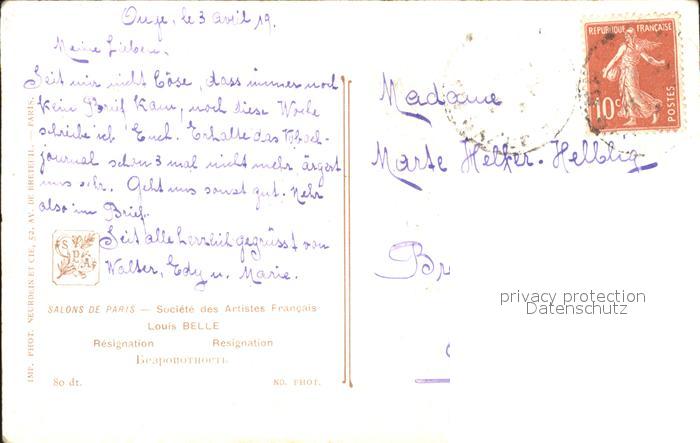 Ouge, le 3 avril 19.
Meine Lieben.
Seit mir nicht böse, dass immer noch
kein Brief kam, noch diese Woche
schreibe ich Euch. Erhalte das
journal schon 3 mal nicht mehr ärgert
uns sehr. Geht uns sonst gut. Mehr
also im Brief.
Seit alle herzlich gegrüsst von
Walter, Edy u. Marie.
SDA
SALONS DE PARIS — Société des Artistes Français
Louis BELLE
Résignation Resignation
Безропотность
80 dt. ND. PHOT.
IMP. PHOT. NEURDEIN ET CIE, 52, AV. DE BRETEUIL. — PARIS.
REPUBLIQUE FRANÇAISE
10c
POSTES
Madame
Marte Helfer-Helblig
Br
privacy protection
Datenschutz